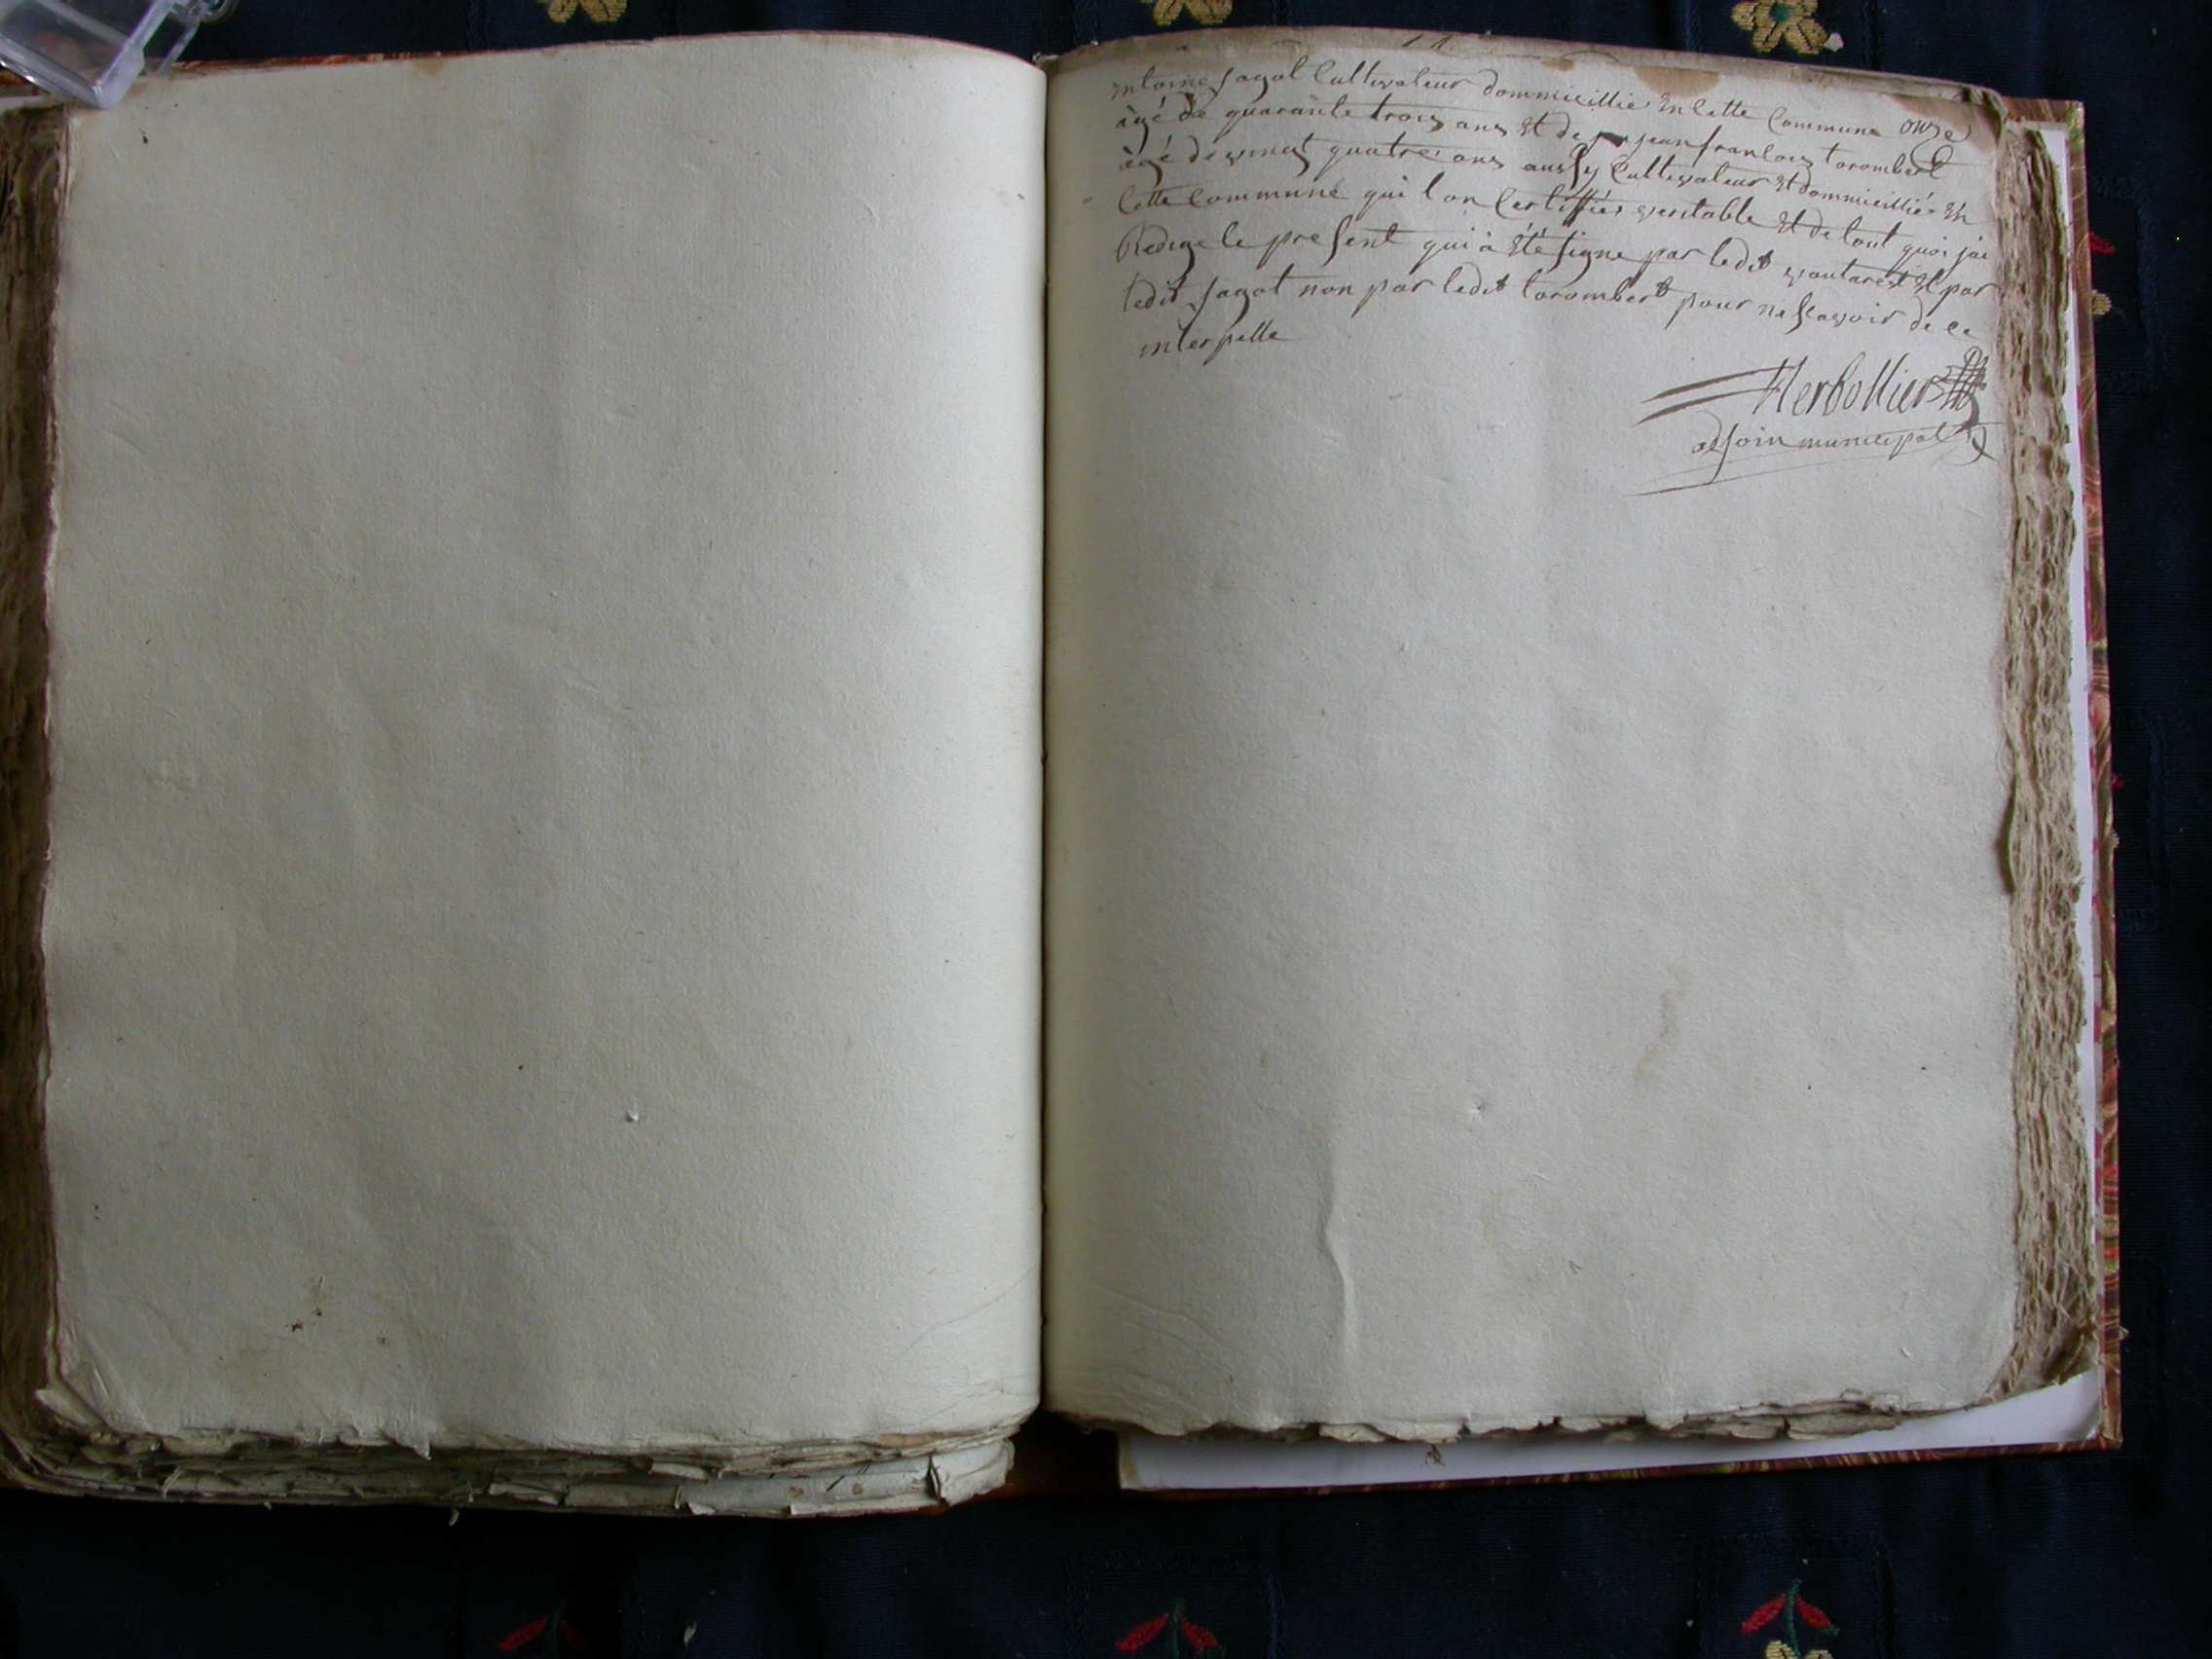 onze
entoine fagot Cultivateur dommicillié En Cette Commune
àgé de quarante trois ans Et de jean francois torombert
àgé de vingt quatre ans aussy Cultivateur Et dommicillié En
Cette Commune qui l'on Certiffiés veritable Et de tout quoi jai
Redige le present qui à Eté signe par ledit Et par
ledit fagot non par ledit torombert pour ne scavoir de ce
interpelle
Herbollier
adjoin municipal